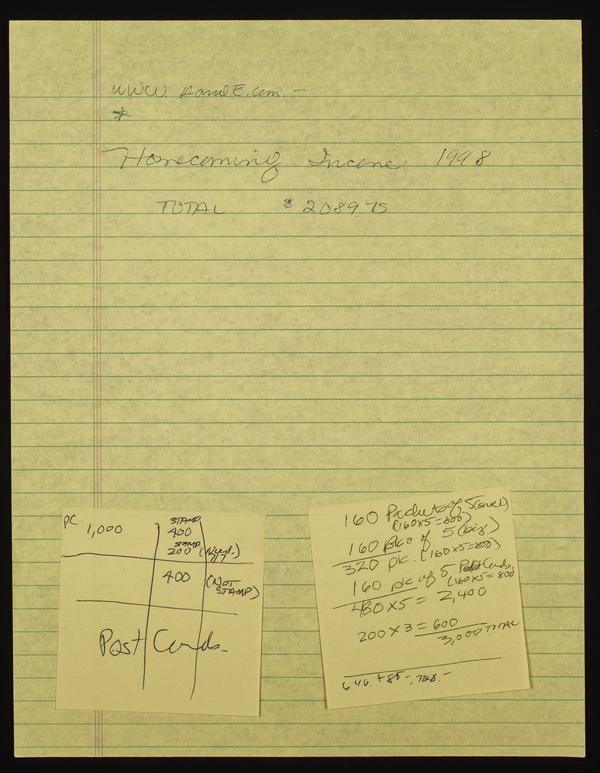 *
Homecoming Income 1998
TOTAL $ 2089.75
PC 1,000
STAMP
400
STAMP
200
400 (NOT
STAMP)
Post Cards.
160 Packets of 5 (small)
(160x5=800)
160 of 5 (big)
320 pk. (160x5=800)
160 pk of 5 Post Cards.
(160x5=800
480x5 = 2,400
200x3=600
3,000 TOTAL